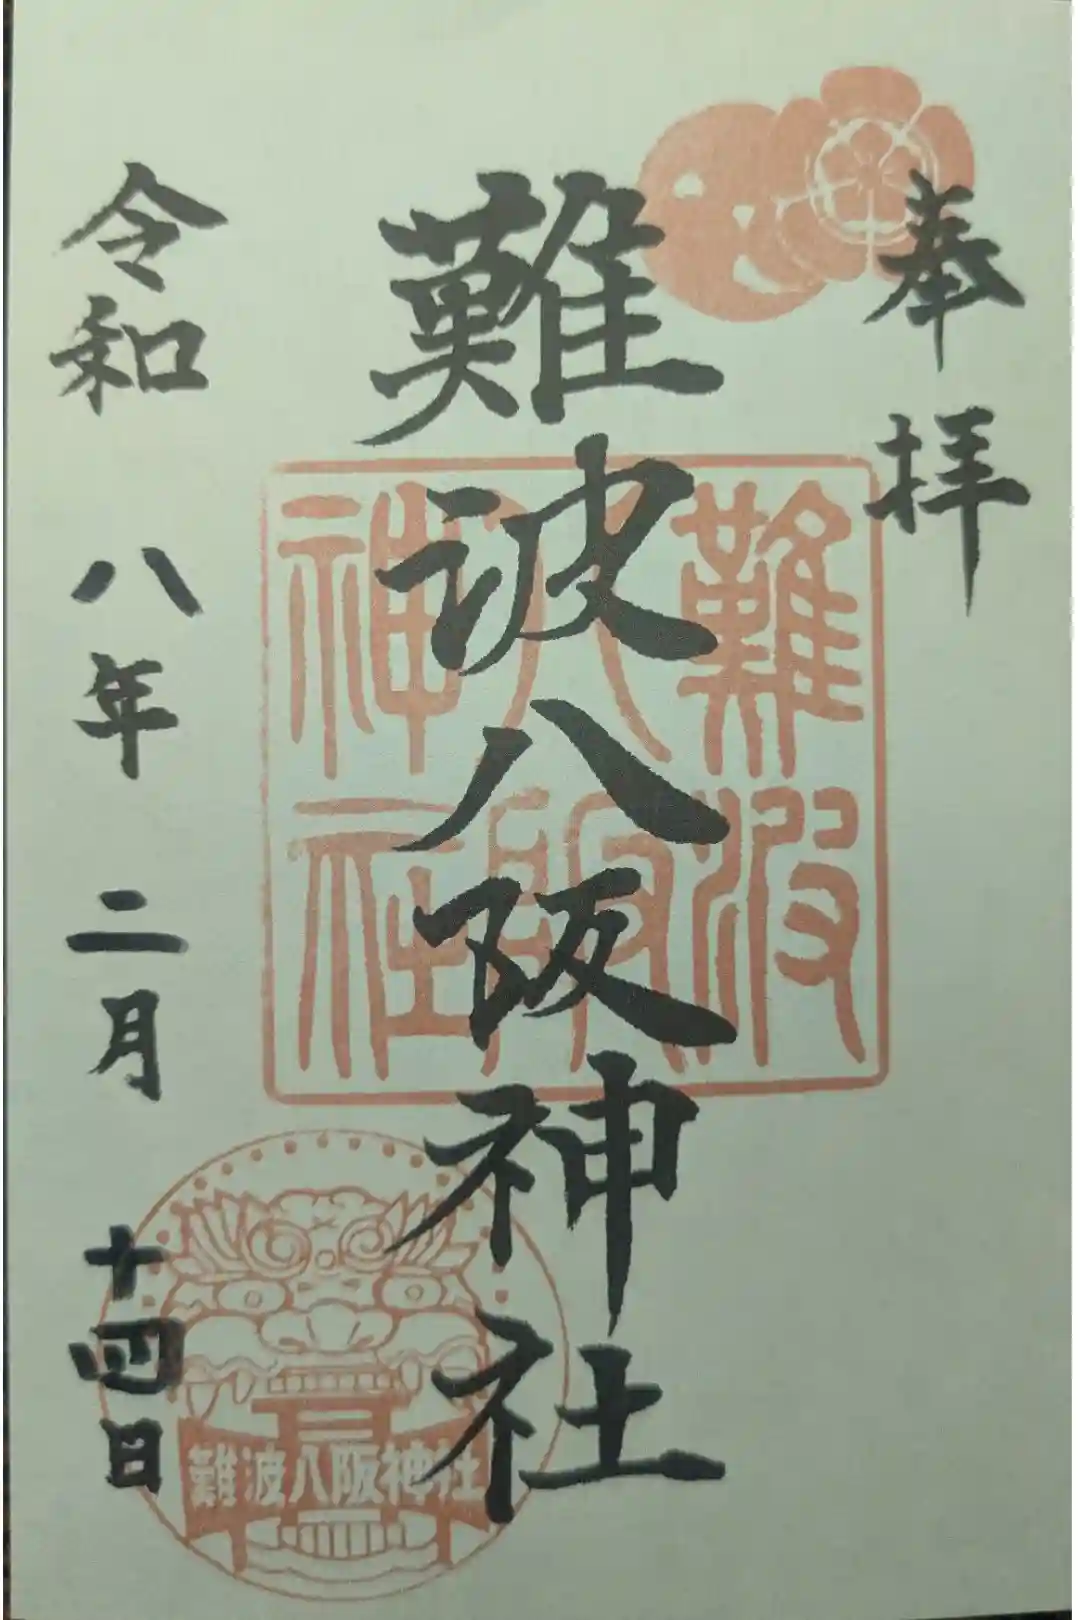 奉拝
難波八阪神社
令和八年二月十四日
難波
八阪
神社
難波八阪神社